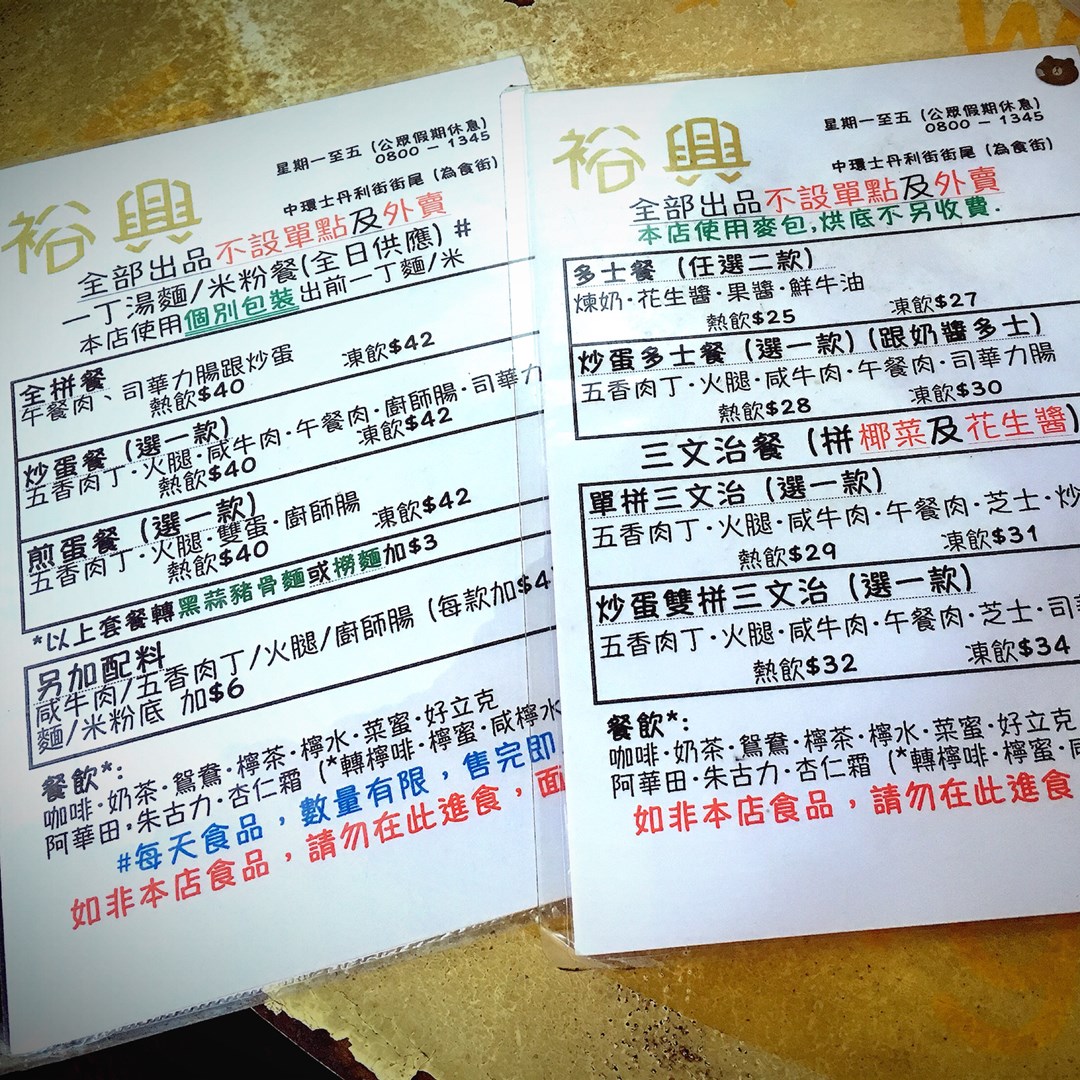 裕興
星期一至五 (公眾假期休息)
0800 - 1345
中環士丹利街街尾 (為食街)
全部出品不設單點及外賣
一丁湯麵/米粉餐(全日供應) #
本店使用個別包裝出前一丁麵/米
全拼餐
午餐肉、司華力腸跟炒蛋
熱飲$40 凍飲$42
炒蛋餐 (選一款)
五香肉丁·火腿·咸牛肉·午餐肉·廚師腸·司華力
熱飲$40 凍飲$42
煎蛋餐 (選一款)
五香肉丁·火腿·雙蛋·廚師腸
熱飲$40 凍飲$42
*以上套餐轉黑蒜豬骨麵或撈麵加$3
另加配料
咸牛肉/五香肉丁/火腿/廚師腸 (每款加$4
麵/米粉底 加$6
餐飲*:
咖啡·奶茶·鴛鴦·檸茶·檸水·菜蜜·好立克
阿華田,朱古力·杏仁霜 (*轉檸啡·檸蜜·咸檸水
#每天食品,數量有限,售完即
如非本店食品,請勿在此進食,面
裕興
星期一至五 (公眾假期休息)
0800 - 1345
中環士丹利街街尾 (為食街)
全部出品不設單點及外賣
本店使用麥包,烘底不另收費.
多士餐 (任選二款)
煉奶·花生醬·果醬·鮮牛油
熱飲$25 凍飲$27
炒蛋多士餐 (選一款) (跟奶醬多士)
五香肉丁·火腿·咸牛肉·午餐肉·司華力腸
熱飲$28 凍飲$30
三文治餐 (拼椰菜及花生醬)
單拼三文治 (選一款)
五香肉丁·火腿·咸牛肉·午餐肉·芝士·炒
熱飲$29 凍飲$31
炒蛋雙拼三文治 (選一款)
五香肉丁·火腿·咸牛肉·午餐肉·芝士·司
熱飲$32 凍飲$34
餐飲*:
咖啡·奶茶·鴛鴦·檸茶·檸水·菜蜜·好立克
阿華田·朱古力·杏仁霜 (*轉檸啡·檸蜜·
如非本店食品,請勿在此進食